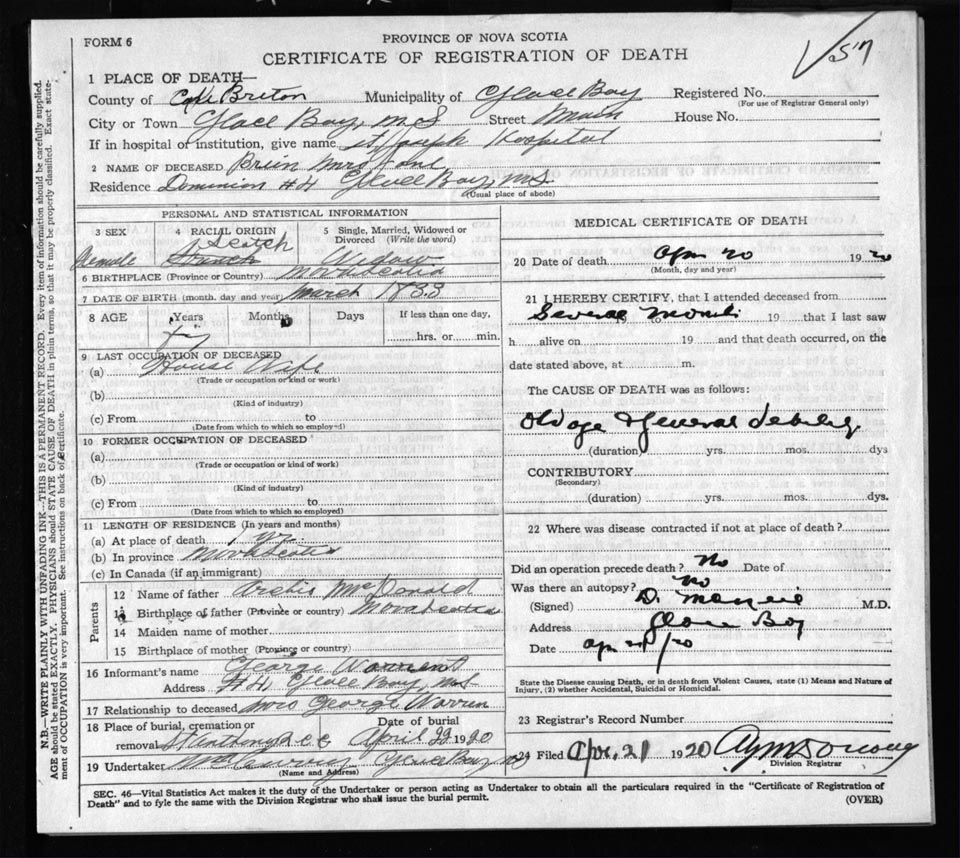 FORM 6
PROVINCE OF NOVA SCOTIA
CERTIFICATE OF REGISTRATION OF DEATH
1 PLACE OF DEATH—
County of Cape Breton Municipality of Glace Bay Registered No.
(For use of Registrar General only)
City or Town Glace Bay, N S Street Main House No.
If in hospital or institution, give name St Joseph Hospital
2 NAME OF DECEASED Brien Mrs Jane
Residence Dominion #4 Glace Bay, N.S.
(Usual place of abode)
PERSONAL AND STATISTICAL INFORMATION
3 SEX 4 RACIAL ORIGIN 5 Single, Married, Widowed or Divorced (Write the word)
Female Scotch Widow
6 BIRTHPLACE (Province or Country) Nova Scotia
7 DATE OF BIRTH (month, day and year) March 1833
8 AGE Years Months Days If less than one day,
hrs. or min.
9 LAST OCCUPATION OF DECEASED
(a) House Wife
(Trade or occupation or kind or work)
(b)
(Kind of industry)
(c) From to
(Date from which to which so employed)
10 FORMER OCCUPATION OF DECEASED
(a)
(Trade or occupation or kind of work)
(b)
(Kind of industry)
(c) From to
(Date from which to which so employed)
11 LENGTH OF RESIDENCE (In years and months)
(a) At place of death 1 yr.
(b) In province Nova Scotia
(c) In Canada (if an immigrant)
Parents
12 Name of father Archie McDonald
13 Birthplace of father (Province or country) Nova Scotia
14 Maiden name of mother
15 Birthplace of mother (Province or country)
16 Informant's name George Warren
Address #4, Glace Bay, N S
17 Relationship to deceased Mrs George Warren
18 Place of burial, cremation or removal Date of burial
St Anthony R.C. April 22 1920
19 Undertaker Glace Bay, N S
(Name and Address)
MEDICAL CERTIFICATE OF DEATH
20 Date of death Apr 20 1920
(Month, day and year)
21 I HEREBY CERTIFY, that I attended deceased from
Several Months 19 to 19 that I last saw
h alive on 19 and that death occurred, on the
date stated above, at m.
The CAUSE OF DEATH was as follows:
Old age & General debility
(duration) yrs. mos. dys
CONTRIBUTORY
(Secondary)
(duration) yrs. mos. dys.
22 Where was disease contracted if not at place of death?
Did an operation precede death? No Date of
Was there an autopsy? No
(Signed) M.D.
Address Glace Bay
Date Apr /20
State the Disease causing Death, or in death from Violent Causes, state (1) Means and Nature of
Injury, (2) whether Accidental, Suicidal or Homicidal.
23 Registrar's Record Number
24 Filed Apr. 21 1920
Division Registrar
SEC. 46—Vital Statistics Act makes it the duty of the Undertaker or person acting as Undertaker to obtain all the particulars required in the "Certificate of Registration of
Death" and to fyle the same with the Division Registrar who shall issue the burial permit.
(OVER)
N.B.—WRITE PLAINLY WITH UNFADING INK—THIS IS A PERMANENT RECORD. Every item of information should be carefully supplied.
AGE should be stated EXACTLY. PHYSICIANS should STATE CAUSE OF DEATH in plain terms, so that it may be properly classified. Exact state-
ment of OCCUPATION is very important. See instructions on back of Certificate.